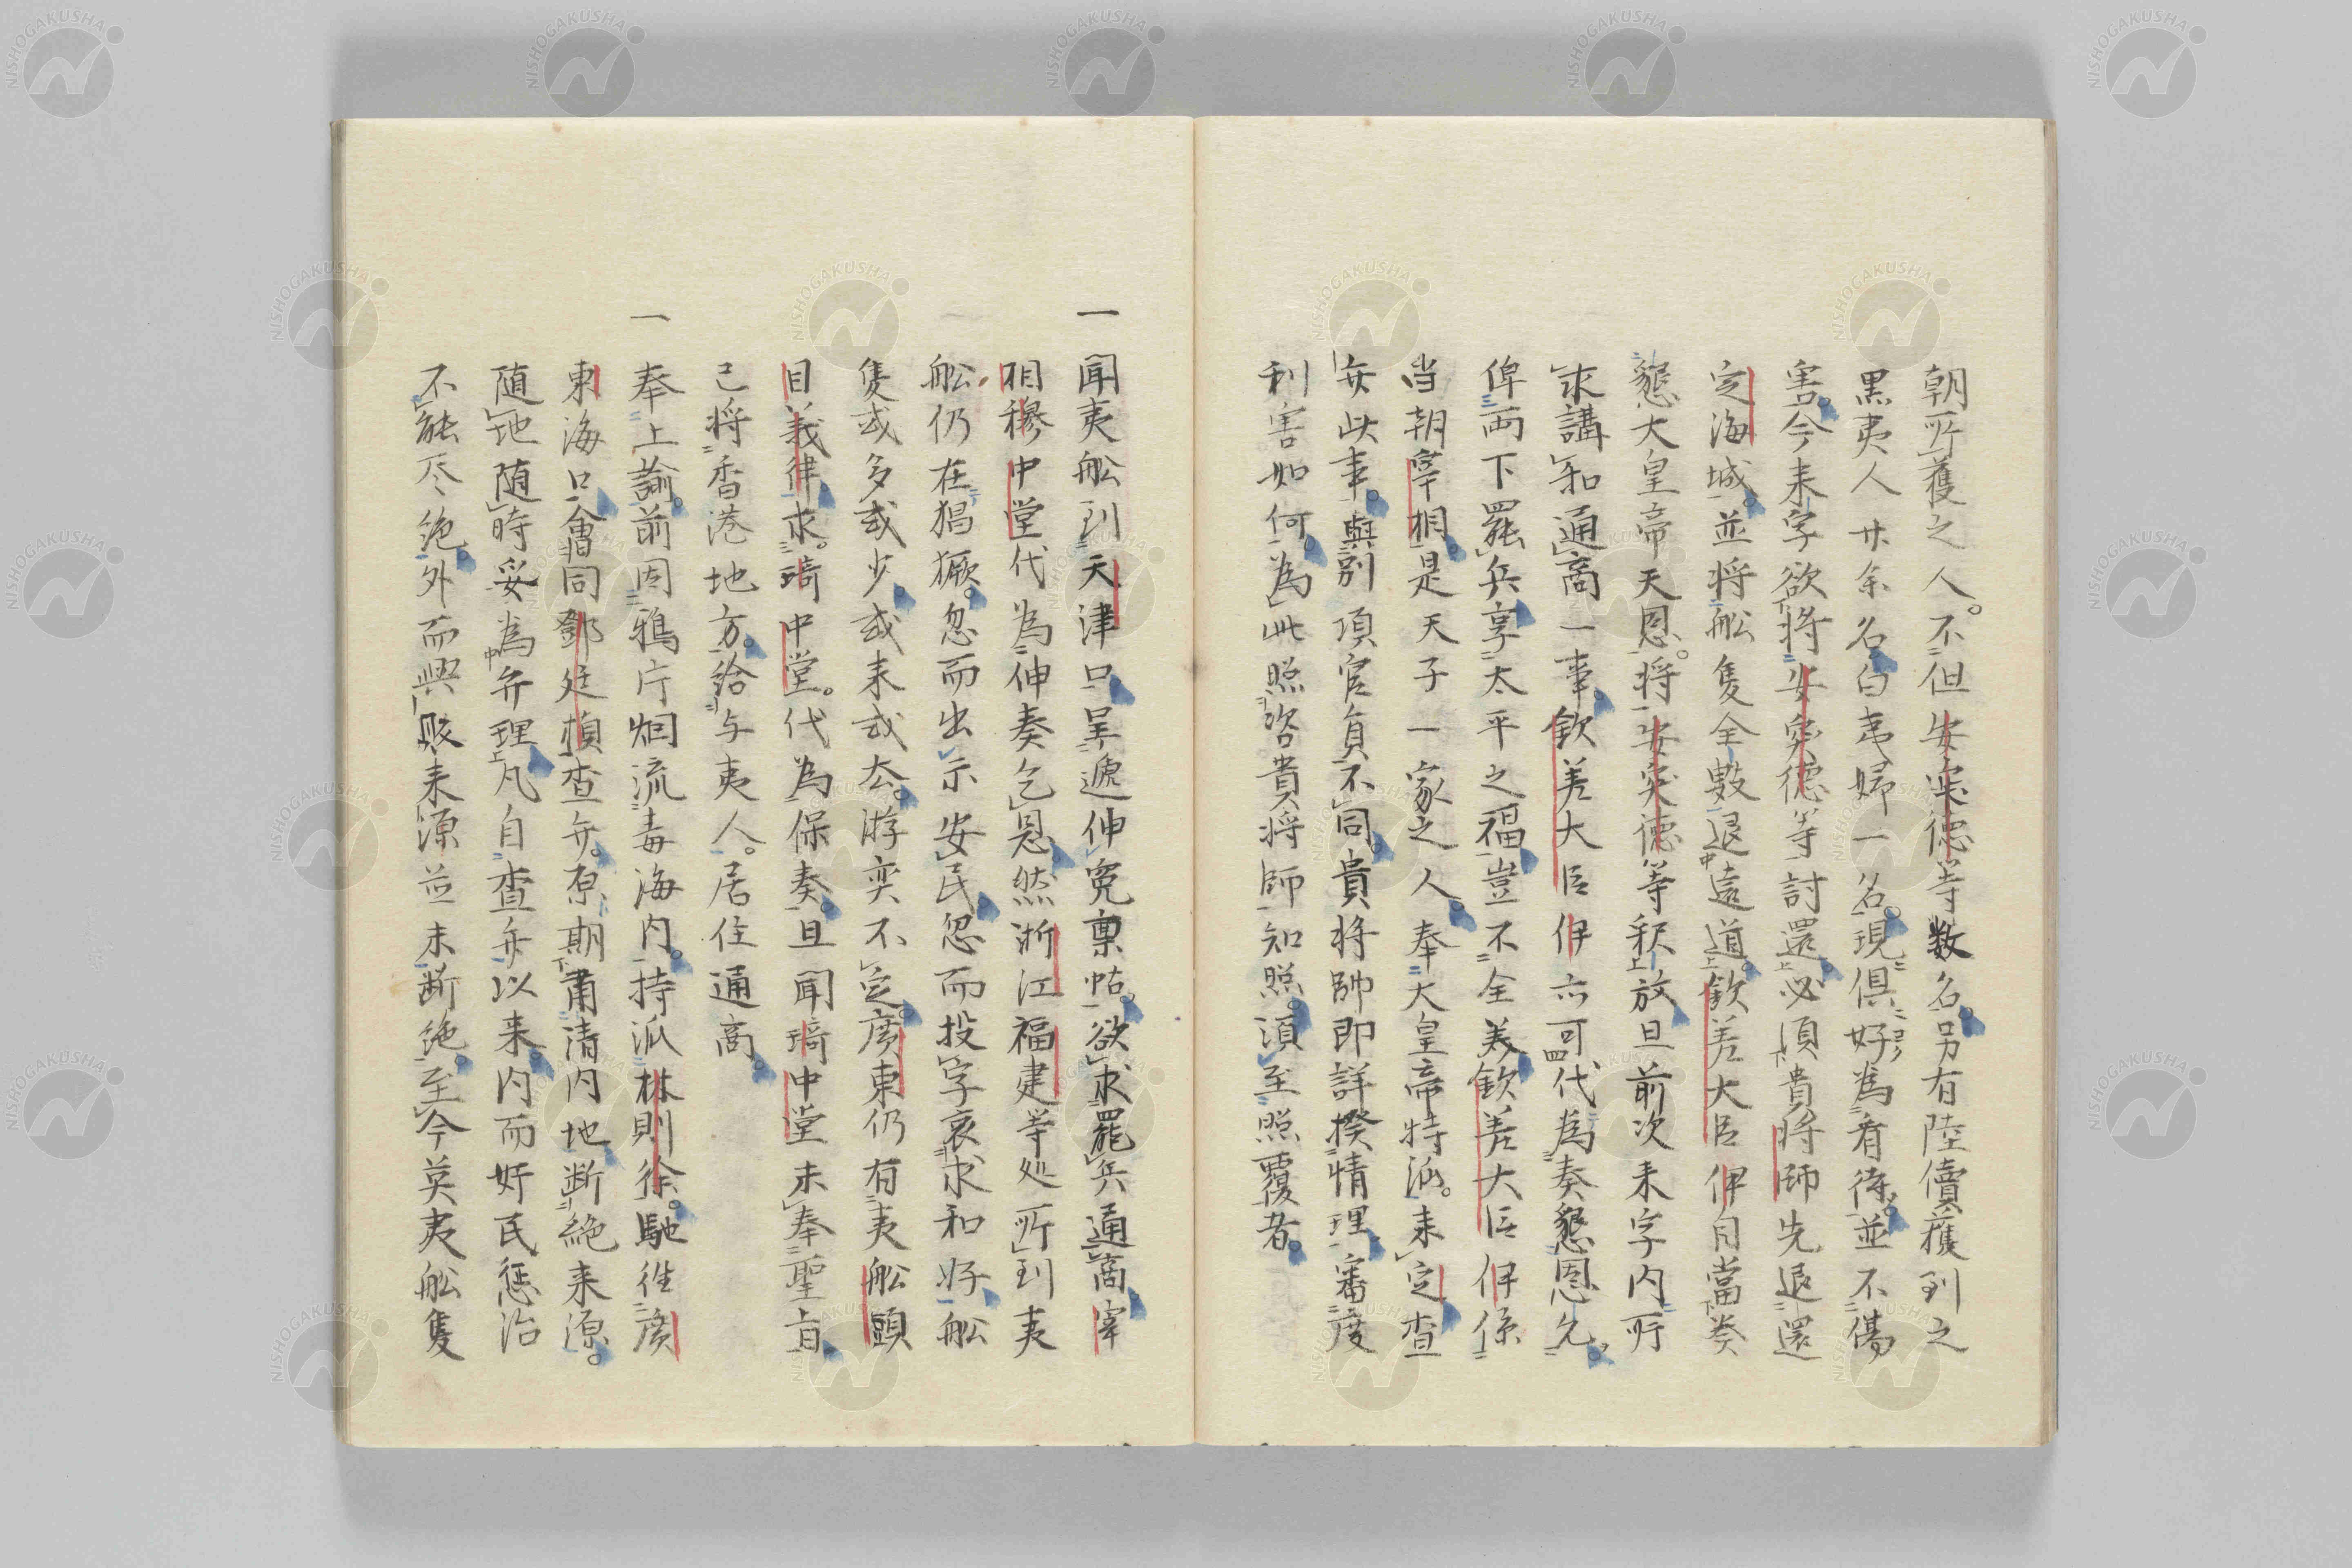 朝所獲之人不但安突徳等数名另有陸續獲到之
黒夷人廿余名白夷婦一名現俱好為看待並不傷
害今来字欲将安突徳等討還必須貴将師先退還
定海城並将舩隻全數退遠道欽差大臣伊自當奏
懇大皇帝天恩将安突徳等釈放且前次来字内所
求講和通商一事欽差大臣伊亦可代為奏懇恩允
俾両下罷兵享太平之福豈不全美欽差大臣伊係
当朝宰相是天子一家之人奉大皇帝特派来定査
弁此事與別項官員不同貴将帥即詳揆情理審度
利害如何為此照咨貴将師知照須至照覆者
一聞夷舩到天津口呈遞伸寃稟帖欲求罷兵通商宰
相穆中堂代為伸奏乞恩然浙江福建等処所到夷
舩仍在猖獗忽而出示安民忽而投字哀求和好舩
隻或多或少或来或去游奕不定廣東仍有夷舩頭
目義律求琦中堂代為保奏且聞琦中堂未奉聖旨
已将香港地方給与夷人居住通商
一奉上諭前因鴉片烟流毒海内特派林則徐馳徃廣
東海口會同鄧廷楨査弁原期粛清内地断絶来源
随地随時妥為弁理凡自査弁以来内而奸民懲治
不能尽絶外而興販来源並未断絶至今英夷舩隻
NISHOGAKUSHA